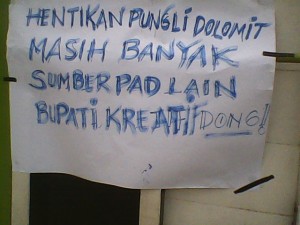 HENTIKAN PUNGLI DOLOMIT
MASIH BANYAK
SUMBER PAD LAIN
BUPATI KREATIF DONG!